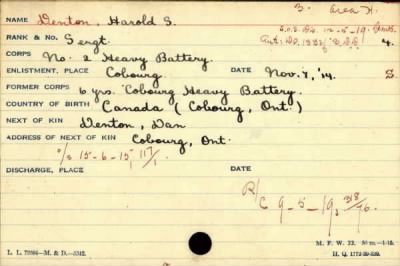 3. Area H.
NAME Denton, Harold S.
S.O.S. Dis. 12-5-19.
RANK & NO. Sergt. 4.
CORPS No. 2 Heavy Battery.
ENLISTMENT, PLACE Cobourg DATE Nov. 7, '14. S.
FORMER CORPS 6 yrs. Cobourg Heavy Battery.
COUNTRY OF BIRTH Canada (Cobourg, Ont.)
NEXT OF KIN Denton, Dan
ADDRESS OF NEXT OF KIN Cobourg, Ont.
o/s 15-6-15,
DISCHARGE, PLACE DATE
R/C 9-5-19,
L. L. M. & D.
M. F. W. 22.
H. Q. 1772-39-